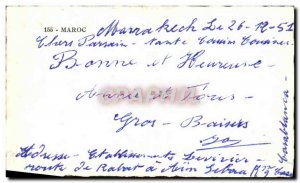 155 - MAROC
Marrakech Le 26-12-51
Chers Parrain - tante Cousin Cousines
Bonne et Heureuse
Année à Tous
Gros - Baisers
Adresse - Etablissements
route de Rabat à Ain Sebaa
Casablanca